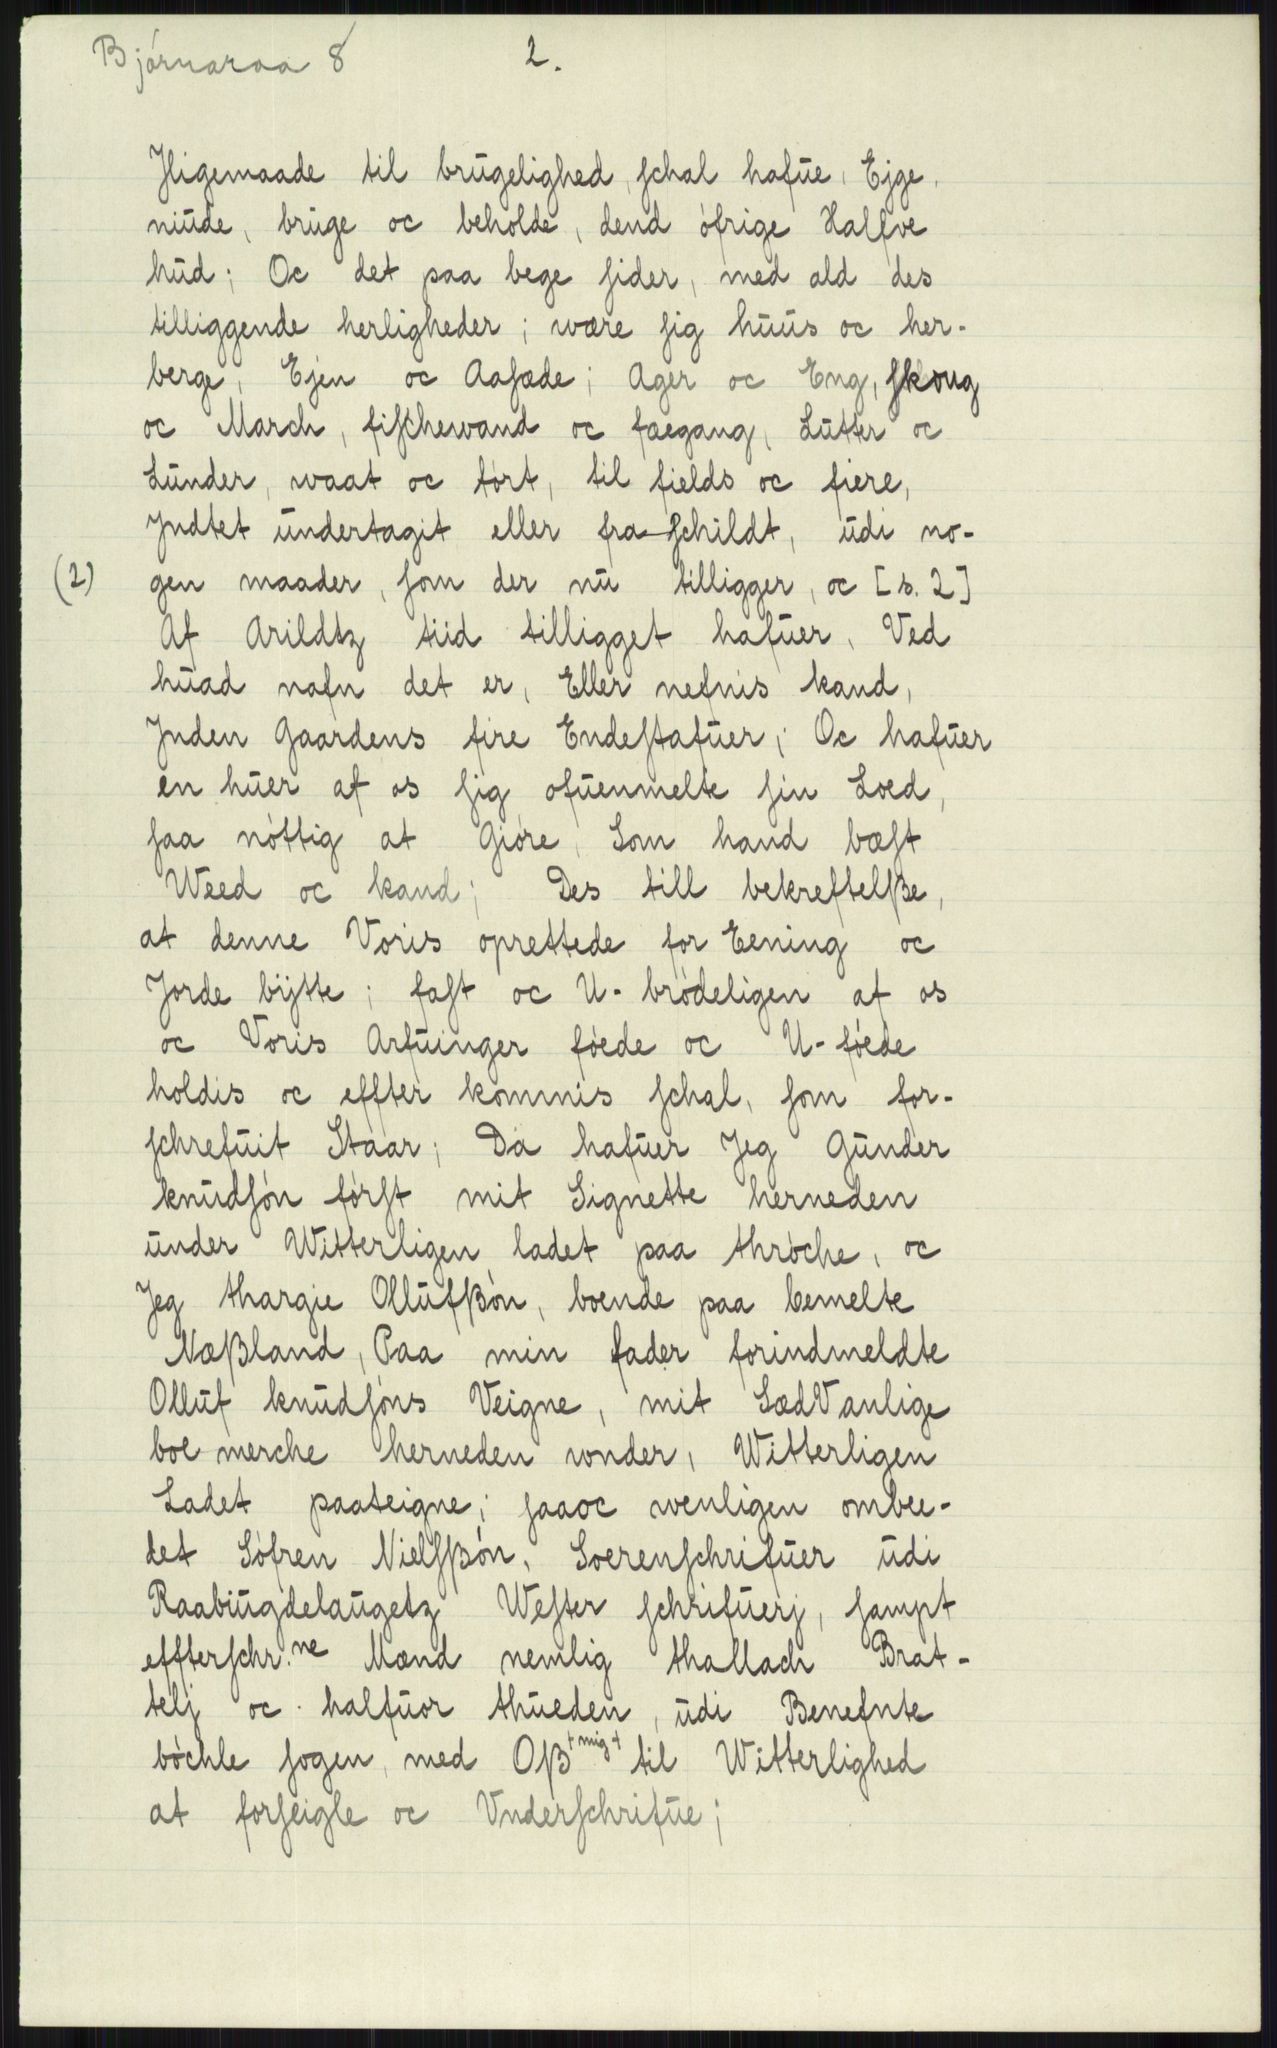 Bjórnaraa 8
2.
Jligemaade til brūgelighed, schal hafūe, Ejge,
niūde, brūge oc beholde, dend ófrige Halfve
hūd; Oc det paa bege sider, med ald des
tilliggende herligheder; wære sig hūūs oc her-
berge, Ejen oc Aasæde; Ager oc Eng, skoug
oc March, fischewand oc fæegang, Lūtter oc
Lūnder, waat oc tórt, til fields oc fiere,
Jndtet ūndertagit eller fra schildt, ūdi no-
(2) gen maader, som der nū tilligger, oc [s. 2]
Af Arildtz tiid tilligget hafūer, Ved
hūad nafn det er, Eller nefnis kand,
Jnden Gaardens fire Endestafūer; Oc hafūer
en hūer af os sig ofūenmelte sin Loed,
saa nóttig at Gióre, Som hand bæst
Weed oc kand; Des till bekreftelße,
at denne Voris oprettede for Eening oc
Jorde bÿtte; fast oc U-bródeligen af os
oc Voris Arfūinger fóede oc U-fóede
holdis oc effter kommis schal, som for-
schrefūit Staar; Da hafūer Jeg Gūnder
knūdsón fórst mit Signette herneden
ūnder Witterligen ladet paa thróche, oc
Jeg thargie Ollūfßón, boende paa bemelte
Næßland, Paa min fader forindmeldte
Ollūf knūdsóns Veigne, mit SædVanlige
boe merche herneden vonder, Witterligen
Ladet paateigne; saaoc wenligen ombee-
det Sófren Nielsßón, Soerenschrifūer ūdi
Raabiūgdelaūgetz Wester schrifūerj, sampt
effterschr.ne Mænd nemlig thallach Brat-
telj oc halfūor thūeden, ūdi Benefnte
bóchle sogen, med Oß +mig+ til Witterlighed
at forseigle oc Vnderschrifūe;